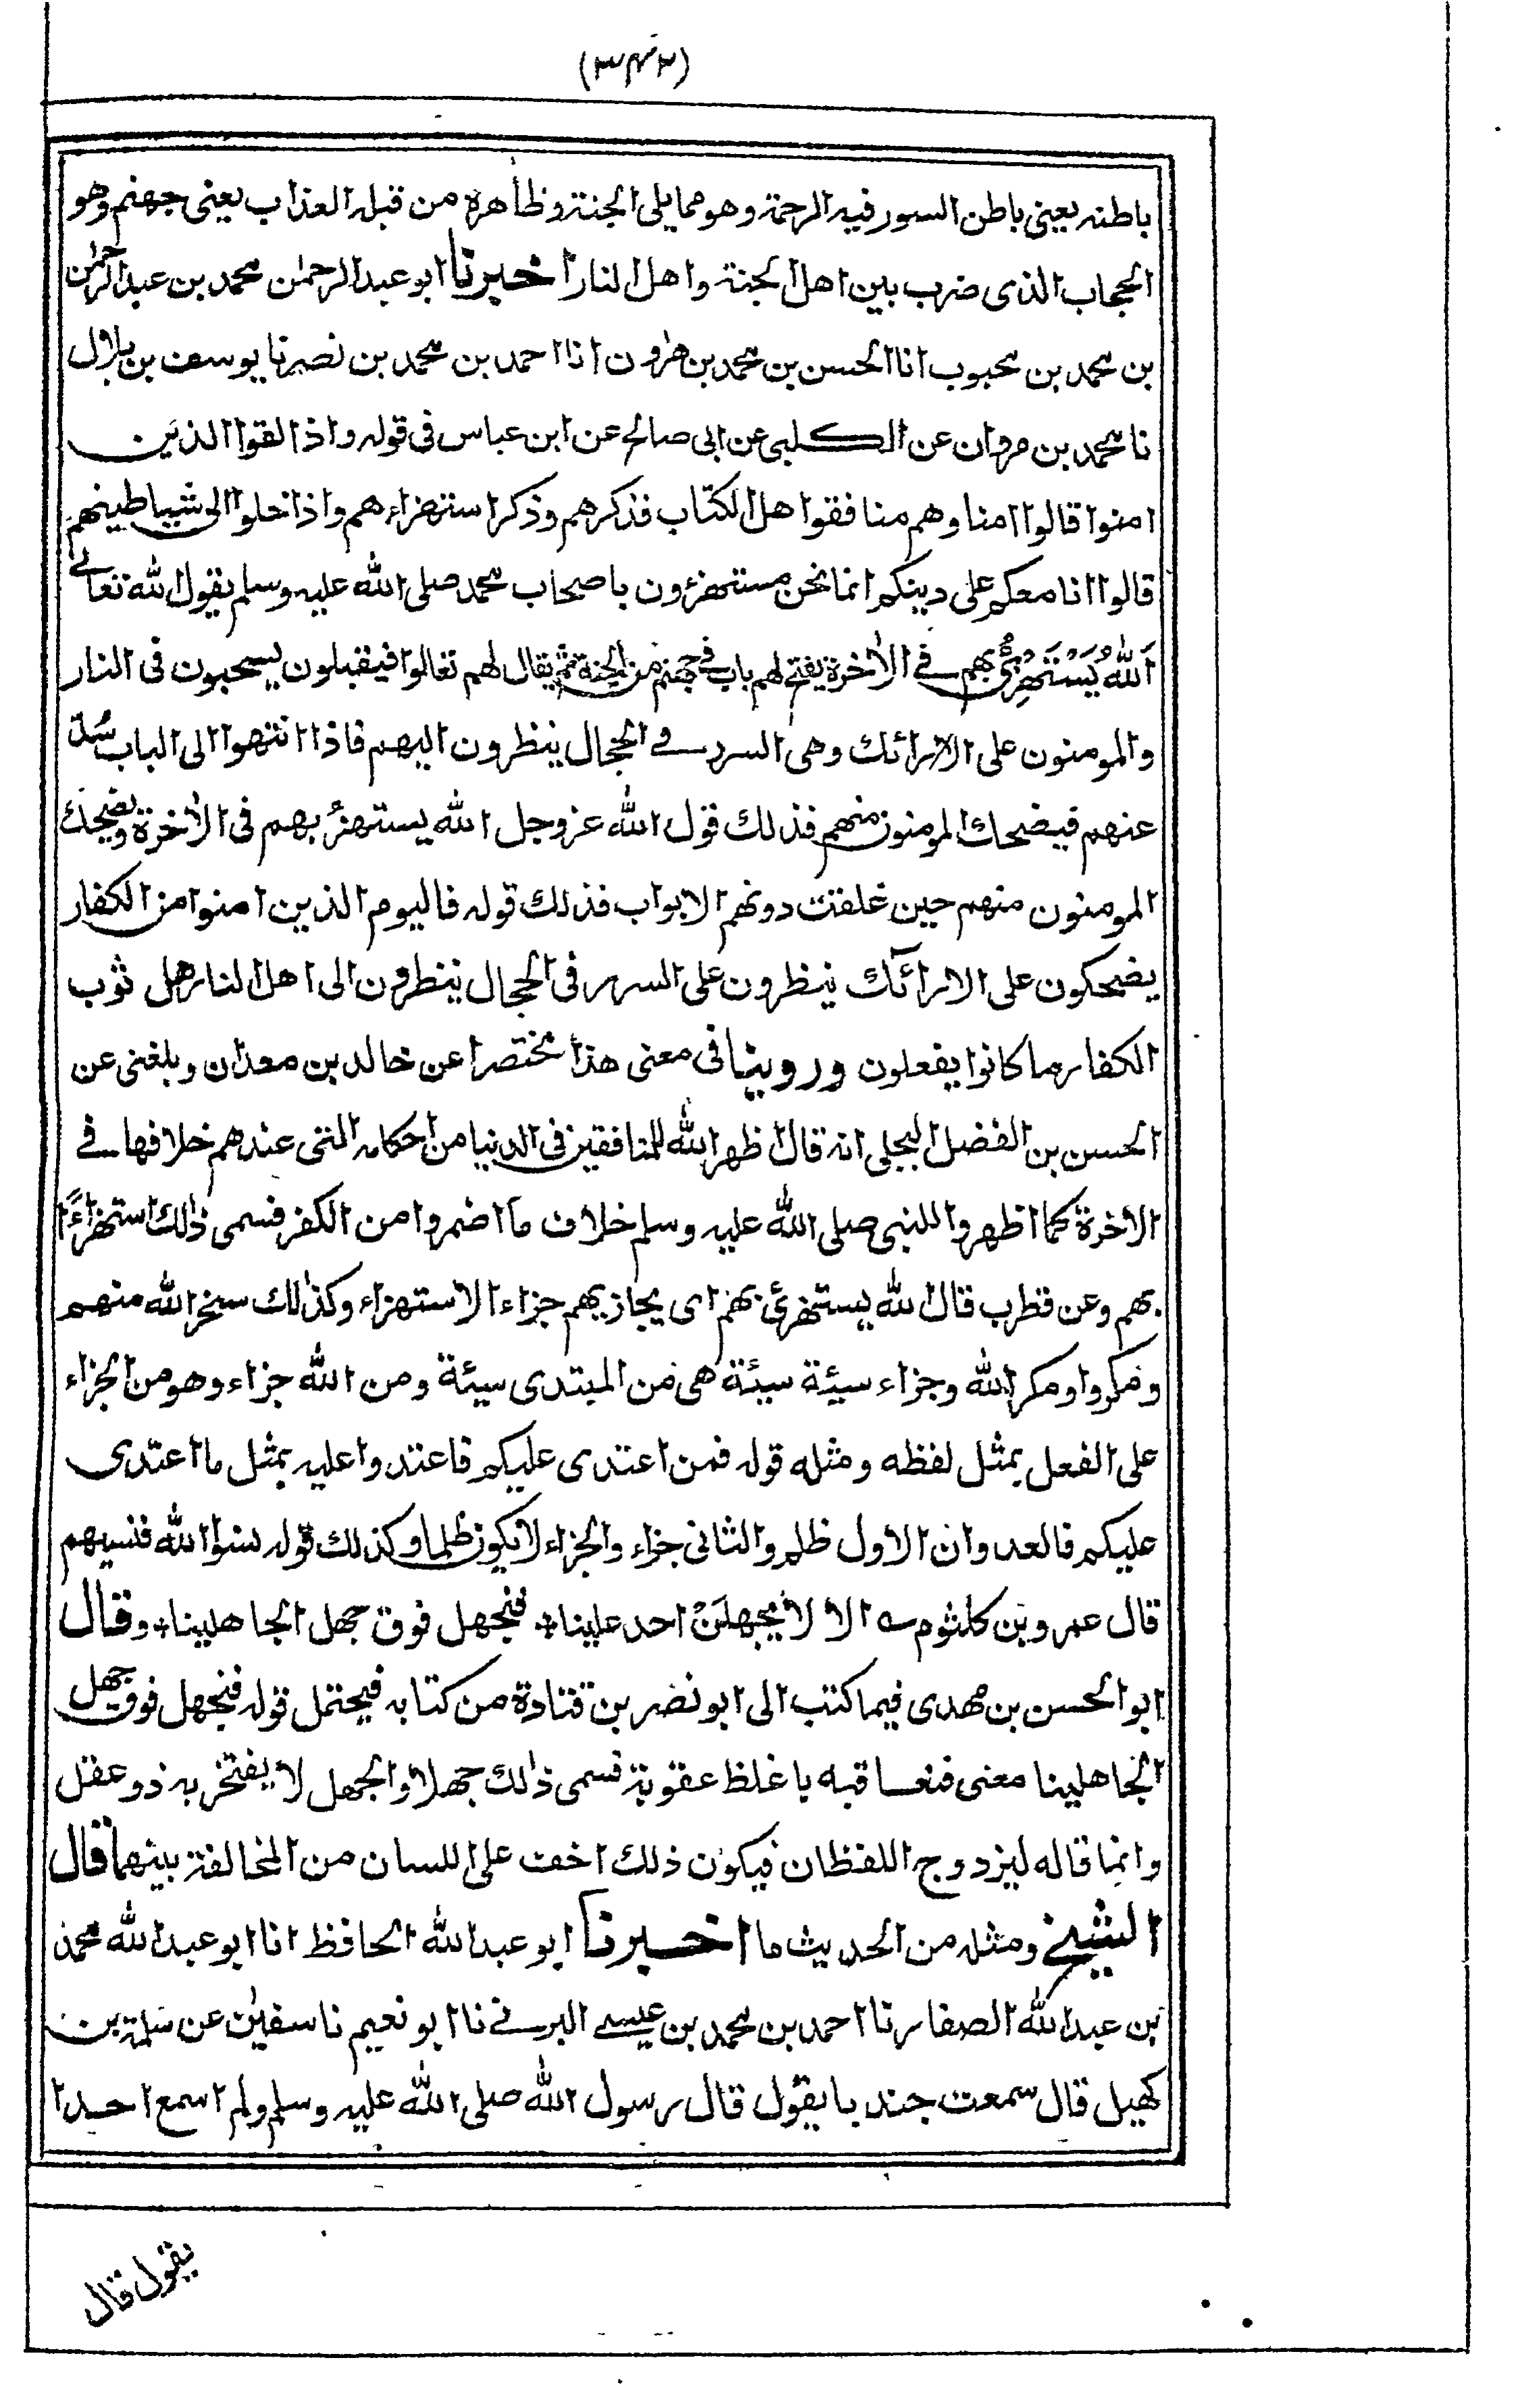 (٣٤٢)
باطنه يعنى باطن السور فيه الرحمة وهو مما يلى الجنة وظاهره من قبله العذاب يعنى جهنم وهو
الحجاب الذى ضرب بين اهل الجنة واهل النار اخبرنا ابو عبد الرحمٰن محمد بن عبد الرحمٰن
بن محمد بن محبوب انا الحسن بن محمد بن هٰرون انا احمد بن محمد بن نصر نا يوسف بن بلال
نا محمد بن مروان عن الكلبى عن ابى صالح عن ابن عباس فى قوله واذا لقوا الذين
امنوا قالوا امنا وهم منافقوا هل الكتاب فذكرهم وذكر استهزاءهم واذا خلوا الى شياطينهم
قالوا انا معكم على دينكم انما نحن مستهزؤن باصحاب محمد صلى الله عليه وسلم يقول الله تعالے
اَللّٰهُ يَسْتَهْزِئُ بهم فے الاٰخرة يفتح لهم باب فے جهنم من الجنة ثم يقال لهم تعالوا فيقبلون يسحبون فى النار
والمومنون على الارائك وهى السرر فے الحجال ينظرون اليهم فاذا انتهوا الى الباب سُدّ
عنهم فيضحك المومنون منهم فذلك قول الله عز وجل الله يستهزئ بهم فى الاٰخرة ويضحك
المومنون منهم حين غلقت دونهم الابواب فذلك قوله فاليوم الذين امنوا من الكفار
يضحكون على الارآئك ينظرون على السرر فى الحجال ينظرون الى اهل النار هل ثوب
الكفار ما كانوا يفعلون وروينا فى معنى هذا مختصرا عن خالد بن معدان وبلغنى عن
الحسن بن الفضل البجلى انه قال اظهر الله للمنافقين فى الدنيا من احكامه التى عندهم خلافها فے
الاٰخرة كما اظهروا للنبى صلى الله عليه وسلم خلاف ما اضمروا من الكفر فسمى ذٰلك استهزاءً
بهم وعن قطرب قال الله يستهزئ بهم اى يجازيهم جزاء الاستهزاء وكذٰلك سخر الله منهم
ومكروا ومكر الله وجزاء سيئة سيئة هى من المبتدى سيئة ومن الله جزاء وهو من الجزاء
على الفعل بمثل لفظه ومثله قوله فمن اعتدى عليكم فاعتدوا عليه بمثل ما اعتدى
عليكم فالعدوان الاول ظلم والثانى جزاء والجزاء لا يكون ظلما وكذلك قوله نسوا الله فنسيهم
قال عمرو بن كلثوم ؎ الا لا يجهلَنْ احد علينا * فنجهل فوق جهل الجاهلينا * وقال
ابو الحسن بن مهدى فيما كتب الى ابو نصر بن قتادة من كتابه فيحتمل قوله فنجهل فوق جهل
الجاهلينا معنى فنعاقبه باغلظ عقوبة فسمى ذٰلك جهلا والجهل لا يفتخر به ذو عقل
وانما قاله ليزدوج اللفظان فيكون ذلك اخف على اللسان من المخالفة بينهما قال
الشيخ ومثله من الحديث ما اخبرنا ابو عبد الله الحافظ انا ابو عبد الله محمد
بن عبد الله الصفار نا احمد بن محمد بن عيسے البرتے نا ابو نعيم نا سفيٰن عن سلمة بن
كهيل قال سمعت جندبا يقول قال رسول الله صلى الله عليه وسلم ولم اسمع احدا
يقول قال